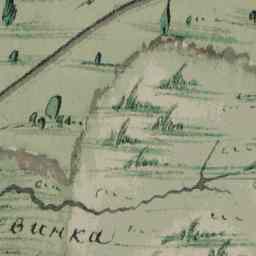 евинка